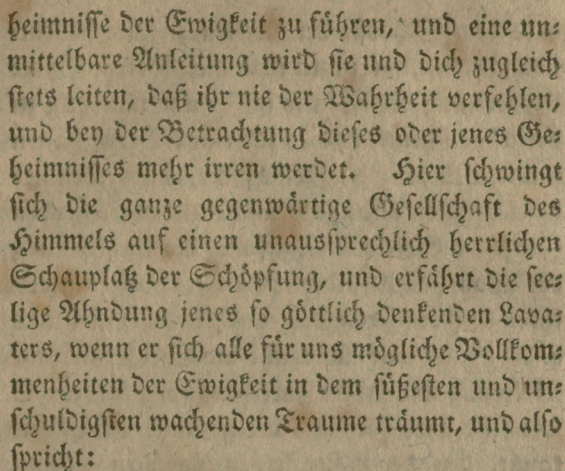 heimnisse der Ewigkeit zu führen, und eine un⸗
mittelbare Anleitung wird sie und dich zugleich
stets leiten, daß ihr nie der Wahrheit verfehlen,
und bey der Betrachtung dieses oder jenes Ge⸗
heimnisses mehr irren werdet. Hier schwingt
sich die ganze gegenwärtige Gesellschaft des
Himmels auf einen unaussprechlich herrlichen
Schauplatz der Schöpfung, und erfährt die see⸗
lige Ahndung jenes so göttlich denkenden Lava⸗
ters, wenn er sich alle für uns mögliche Vollkom⸗
menheiten der Ewigkeit in dem süßesten und un⸗
schuldigsten wachenden Traume träumt, und also
spricht: